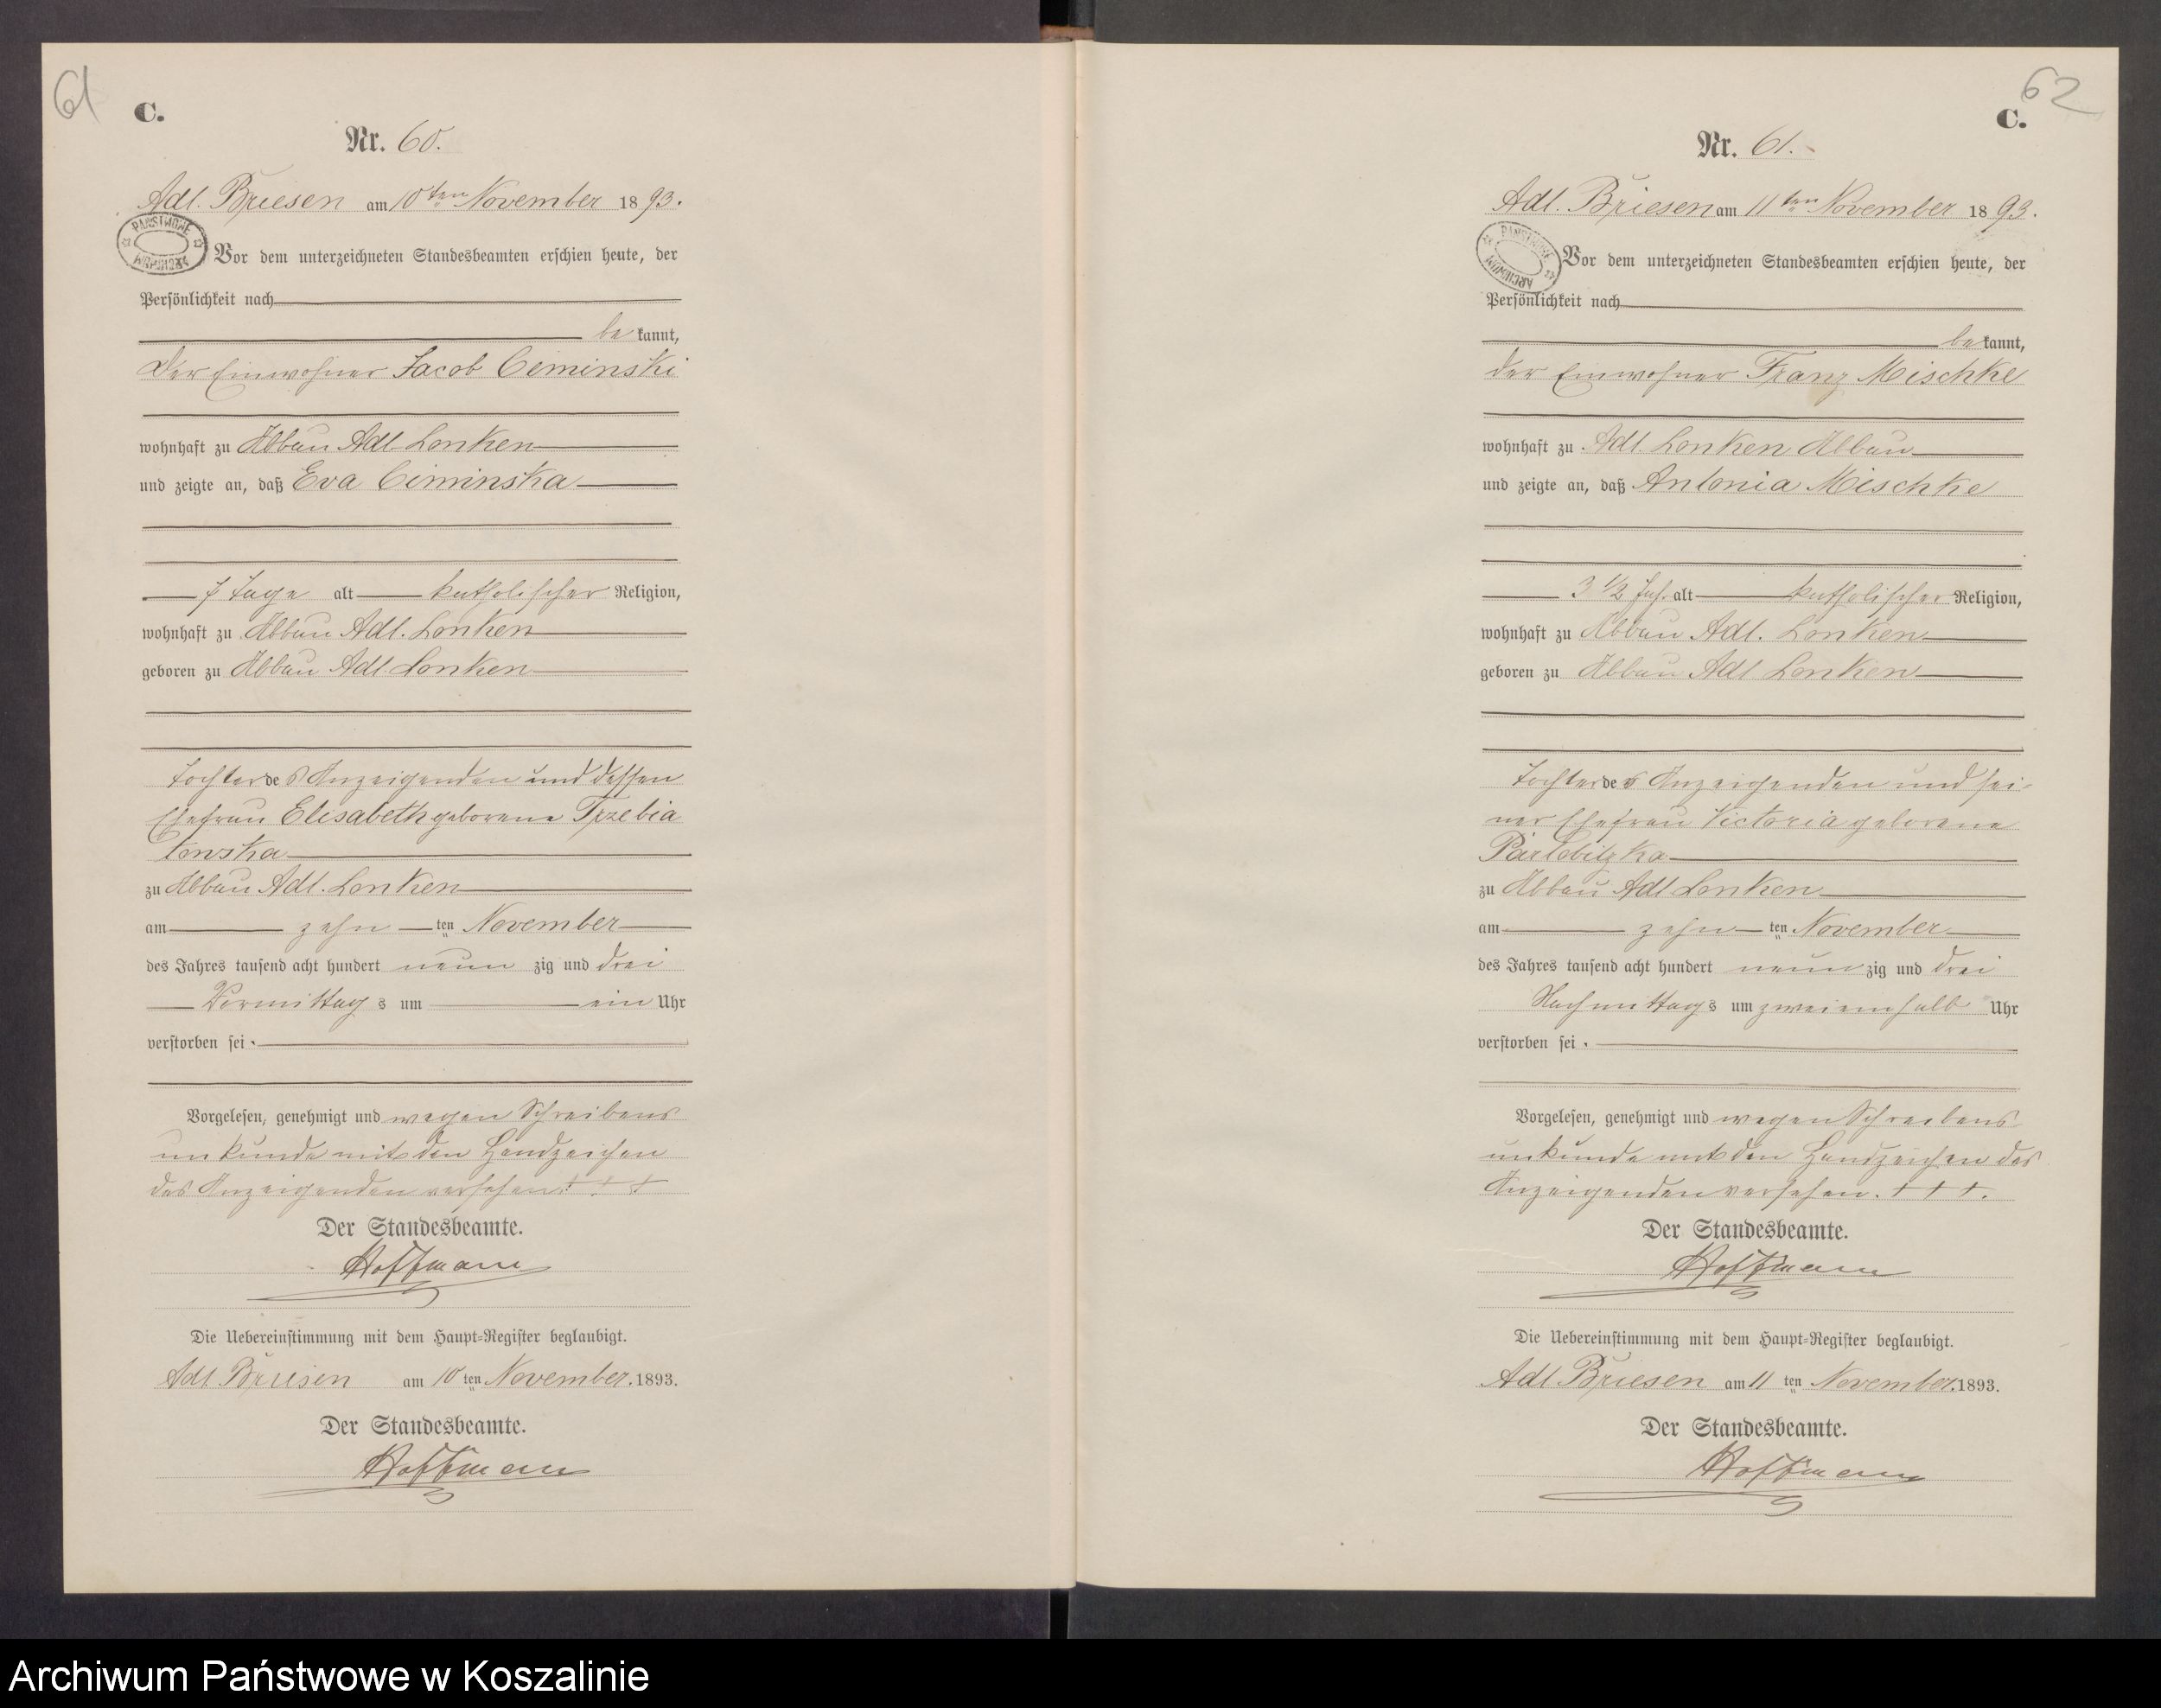 61
C.
Nr. 60.
Adl. Briesen am 10ten November 1893.
PAŃSTWOWE ARCHIWUM
Vor dem unterzeichneten Standesbeamten erschien heute, der
Persönlichkeit nach
be kannt,
Der Einwohner Jacob Ciminski
wohnhaft zu Abbau Adl. Lonken
und zeigte an, daß Eva Ciminska
7 Tage alt katholischer Religion,
wohnhaft zu Abbau Adl. Lonken
geboren zu Abbau Adl. Lonken
Tochter des Anzeigenden und dessen
Ehefrau Elisabeth geborene Trzebia
towska
zu Abbau Adl. Lonken
am zehn ten November
des Jahres tausend acht hundert neun zig und drei
Vormittags um ein Uhr
verstorben sei.
Vorgelesen, genehmigt und wegen Schreibens
unkunde mit den Handzeichen
des Anzeigenden versehen. + + +
Der Standesbeamte.
Hoffmann
Die Uebereinstimmung mit dem Haupt-Register beglaubigt.
Adl. Briesen am 10 ten November. 1893.
Der Standesbeamte.
Hoffmann
62
C.
Nr. 61.
Adl. Briesen am 11ten November 1893.
PAŃSTWOWE ARCHIWUM
Vor dem unterzeichneten Standesbeamten erschien heute, der
Persönlichkeit nach
be kannt,
der Einwohner Franz Mischke
wohnhaft zu Adl. Lonken Abbau
und zeigte an, daß Antonia Mischke
3 1/2 Jah. alt katholischer Religion,
wohnhaft zu Abbau Adl. Lonken
geboren zu Abbau Adl Lonken
Tochter des Anzeigenden und sei-
ner Ehefrau Victoria geborene
zu Abbau Adl Lonken
am zehn ten November
des Jahres tausend acht hundert neun zig und drei
Nachmittags um zweieinhalb Uhr
verstorben sei.
Vorgelesen, genehmigt und wegen Schreibens
unkunde mit den Handzeichen des
Anzeigenden versehen. + + +.
Der Standesbeamte.
Hoffmann
Die Uebereinstimmung mit dem Haupt-Register beglaubigt.
Adl Briesen am 11 ten November. 1893.
Der Standesbeamte.
Hoffmann
Archiwum Państwowe w Koszalinie